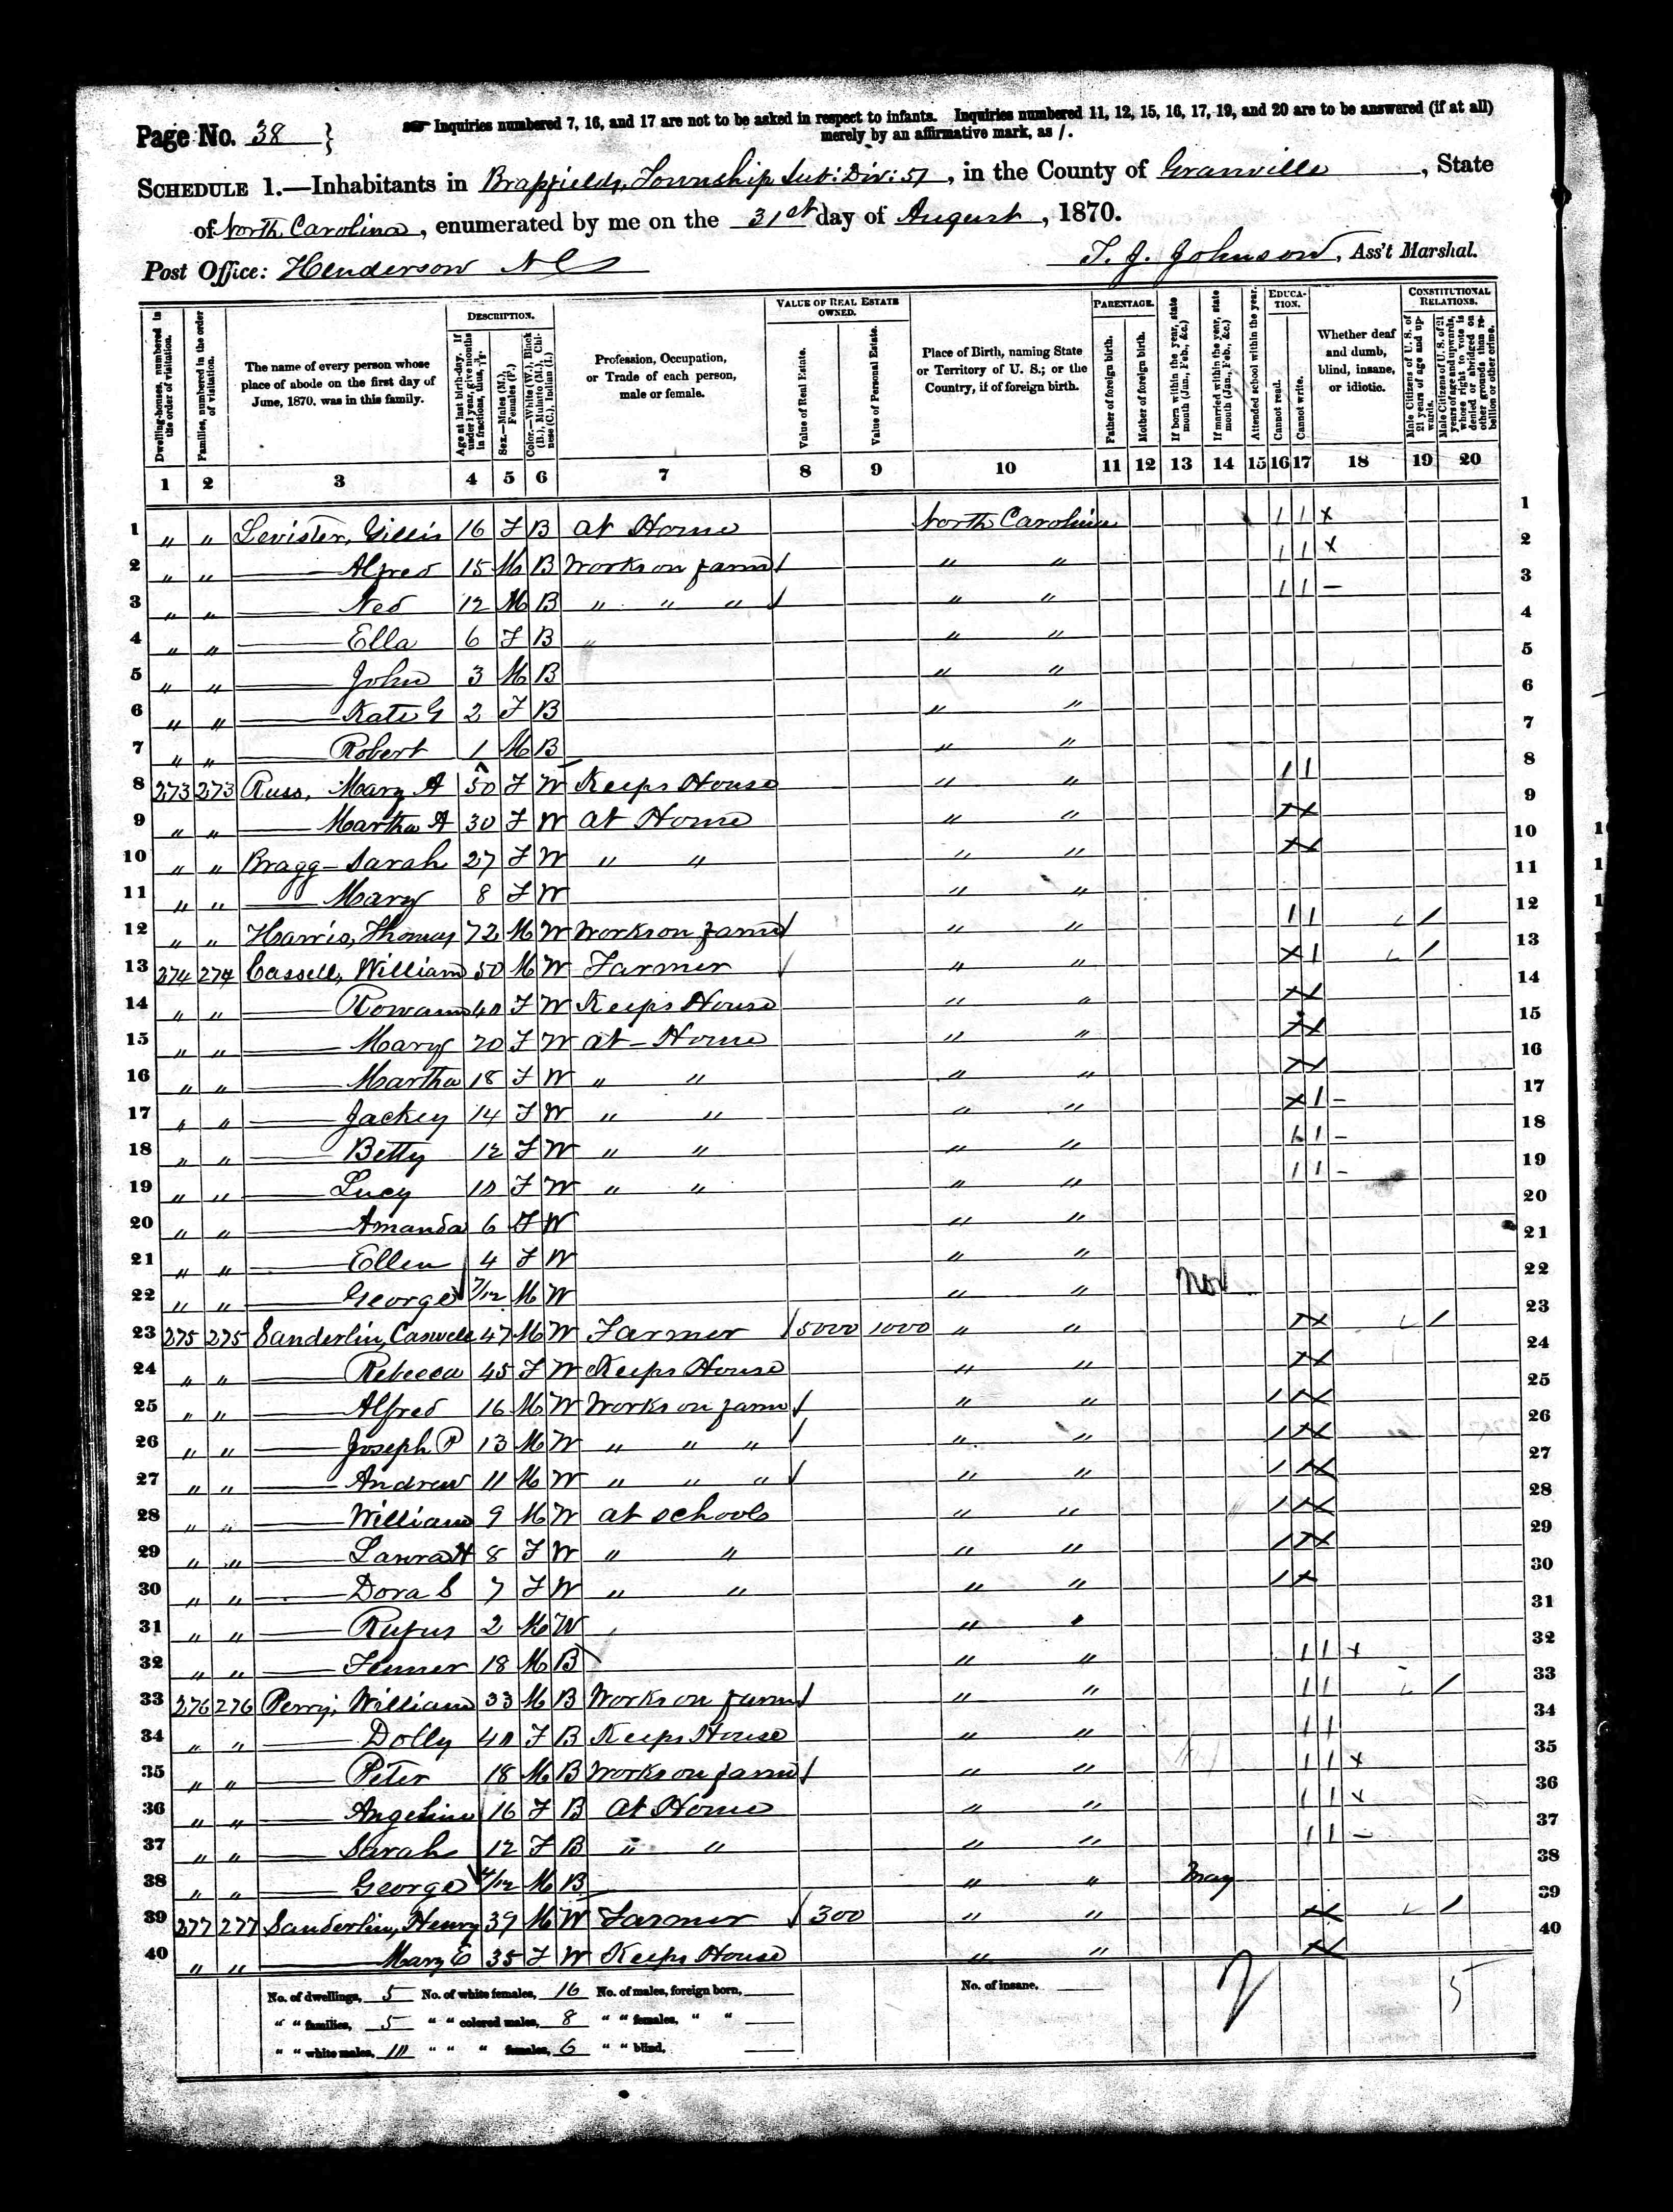 Page No. 38 } Inquiries numbered 7, 16, and 17 are not to be asked in respect to infants. Inquiries numbered 11, 12, 15, 16, 17, 19, and 20 are to be answered (if at all)
merely by an affirmative mark, as /.
SCHEDULE 1.—Inhabitants in Township Sub: Div: 51, in the County of Granville, State
of North Carolina, enumerated by me on the 31st day of August, 1870.
Post Office: Henderson N C T. J. Johnson, Ass't Marshal.
Dwelling-houses, numbered in the order of visitation.
Families, numbered in the order of visitation.
The name of every person whose place of abode on the first day of June, 1870, was in this family.
DESCRIPTION.
Age at last birth-day. If under 1 year, give months in fractions, thus, 3/12.
Sex.—Males (M.), Females (F.)
Color.—White (W.), Black (B.), Mulatto (M.), Chinese (C.), Indian (I.)
Profession, Occupation, or Trade of each person, male or female.
VALUE OF REAL ESTATE OWNED.
Value of Real Estate.
Value of Personal Estate.
Place of Birth, naming State or Territory of U. S.; or the Country, if of foreign birth.
PARENTAGE.
Father of foreign birth.
Mother of foreign birth.
If born within the year, state month (Jan., Feb., &c.)
If married within the year, state month (Jan., Feb., &c.)
Attended school within the year.
EDUCATION.
Cannot read.
Cannot write.
Whether deaf and dumb, blind, insane, or idiotic.
CONSTITUTIONAL RELATIONS.
Male Citizens of U. S. of 21 years of age and upwards.
Male Citizens of U. S. of 21 years of age and upwards, whose right to vote is denied or abridged on other grounds than rebellion or other crime.
1 2 3 4 5 6 7 8 9 10 11 12 13 14 15 16 17 18 19 20
1 " " Levister, Gillis 16 F B At Home North Carolina / / x 1
2 " " — Alfred 15 M B Works on farm / " " / / x 2
3 " " — Ned 12 M B " " " / " " / / – 3
4 " " — Ella 6 F B " " " 4
5 " " — John 3 M B " " 5
6 " " — Kate G 2 F B " " 6
7 " " — Robert 1 M B " " 7
8 273 273 Russ, Mary A 50 F W Keeps House " " / / 8
9 " " — Martha A 30 F W At Home " " x x 9
10 " " Bragg – Sarah 27 F W " " " " x x 10
11 " " — Mary 8 F W " " 11
12 " " Harris, Thomas 72 M W Works on farm / " " / / / 12
13 274 274 Cassell, William 50 M W Farmer / " " x / / 13
14 " " — Rowann 40 F W Keeps House " " x x 14
15 " " — Mary 20 F W At – Home " " x x 15
16 " " — Martha 18 F W " " " " x x 16
17 " " — Jackey 14 F W " " " " x / – 17
18 " " — Betty 12 F W " " " " / / – 18
19 " " — Lucy 10 F W " " " " / / – 19
20 " " — Amanda 6 F W " " 20
21 " " — Ellen 4 F W " " 21
22 " " — George 7/12 M W " " Nov 22
23 275 275 Sanderlin, Caswell 47 M W Farmer / 5000 1000 " " x x / 23
24 " " — Rebecca 45 F W Keeps House " " x x 24
25 " " — Alfred 16 M W Works on farm / " " / x x 25
26 " " — Joseph P 13 M W " " " / " " / x x 26
27 " " — Andrew 11 M W " " " / " " / x x 27
28 " " — William 9 M W at school " " / x x 28
29 " " — Laura H 8 F W " " " " / x x 29
30 " " — Dora S 7 F W " " " " / x 30
31 " " — Rufus 2 M W " " 31
32 " " — Fenner 18 M B " " / / x 32
33 276 276 Perry, William 33 M B Works on farm / " " / / / 33
34 " " — Dolly 40 F B Keeps House " " / / 34
35 " " — Peter 18 M B Works on farm / " " / / x 35
36 " " — Angeline 16 F B At Home " " / / x 36
37 " " — Sarah 12 F B " " " " / / – 37
38 " " — George /12 M B " " May 38
39 277 277 Sanderlin, Henry 39 M W Farmer / 300 " " x x / 39
40 " " — Mary E 35 F W Keeps House " " x x 40
No. of dwellings, 5 No. of white females, 16 No. of males, foreign born, No. of insane, 2 5
" " families, 5 " " colored males, 8 " " females, " "
" " white males, 10 " " " females, 6 " " blind,